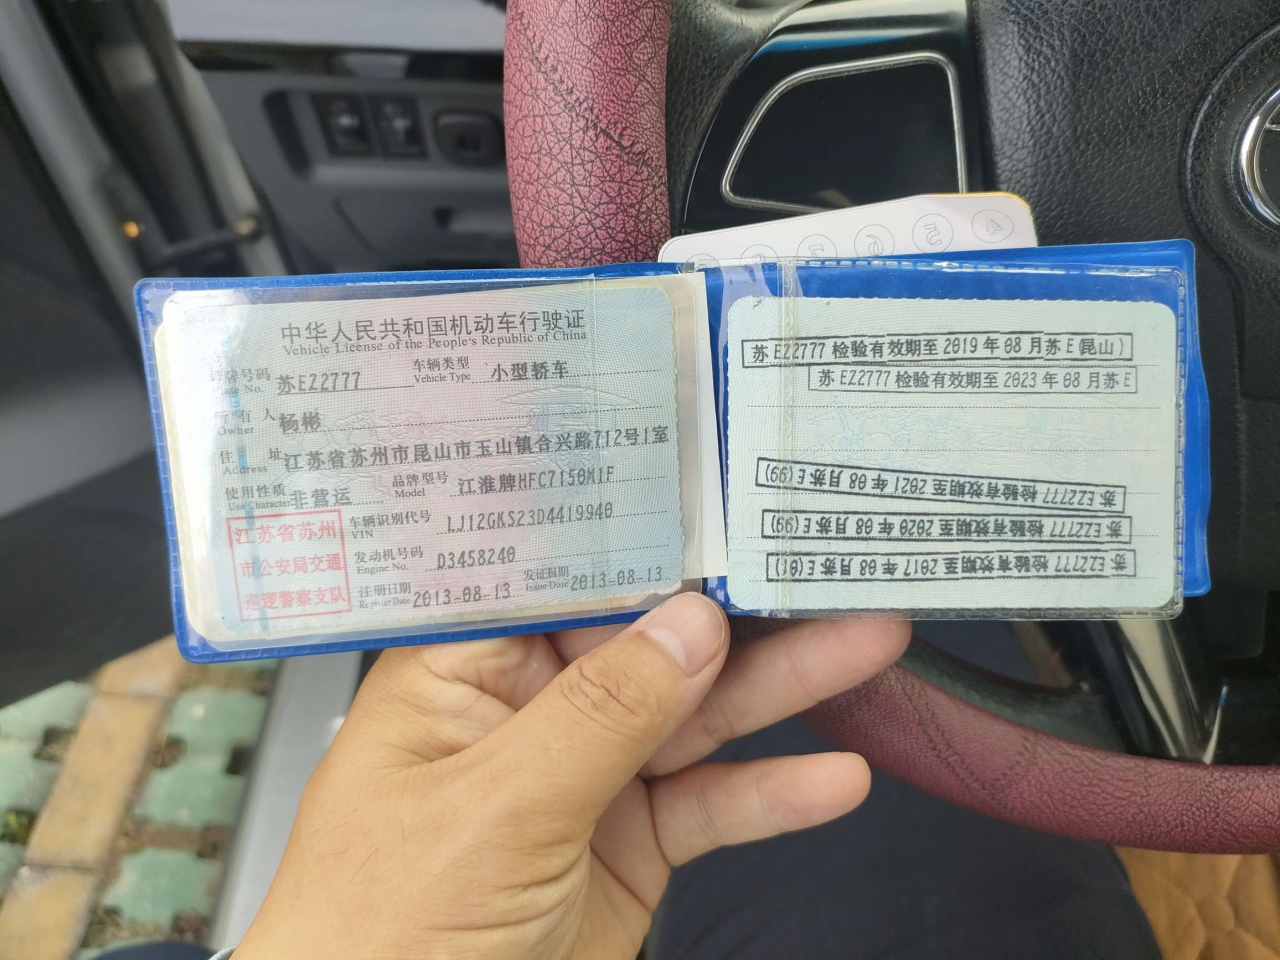 中华人民共和国机动车行驶证
Vehicle License of the People's Republic of China
号牌号码 苏EZ2777 车辆类型 小型轿车
Plate No. Vehicle Type
所有人 杨彬
Owner
住址 江苏省苏州市昆山市玉山镇合兴路712号1室
Address
使用性质 非营运 品牌型号 江淮牌HFC7150M1F
Use Character Model
江苏省苏州
市公安局交通
巡逻警察支队
车辆识别代号 LJ12GKS23D4419940
VIN
发动机号码 D3458240
Engine No.
注册日期 2013-08-13 发证日期 2013-08-13
Register Date Issue Date
苏EZ2777 检验有效期至 2019 年 08 月苏E(昆山)
苏EZ2777 检验有效期至 2023 年 08 月苏E
苏EZ2777 检验有效期至 2021 年 08 月苏E(99)
苏EZ2777 检验有效期至 2020 年 08 月苏E(99)
苏EZ2777 检验有效期至 2017 年 08 月苏E(01)
4
5
6
7